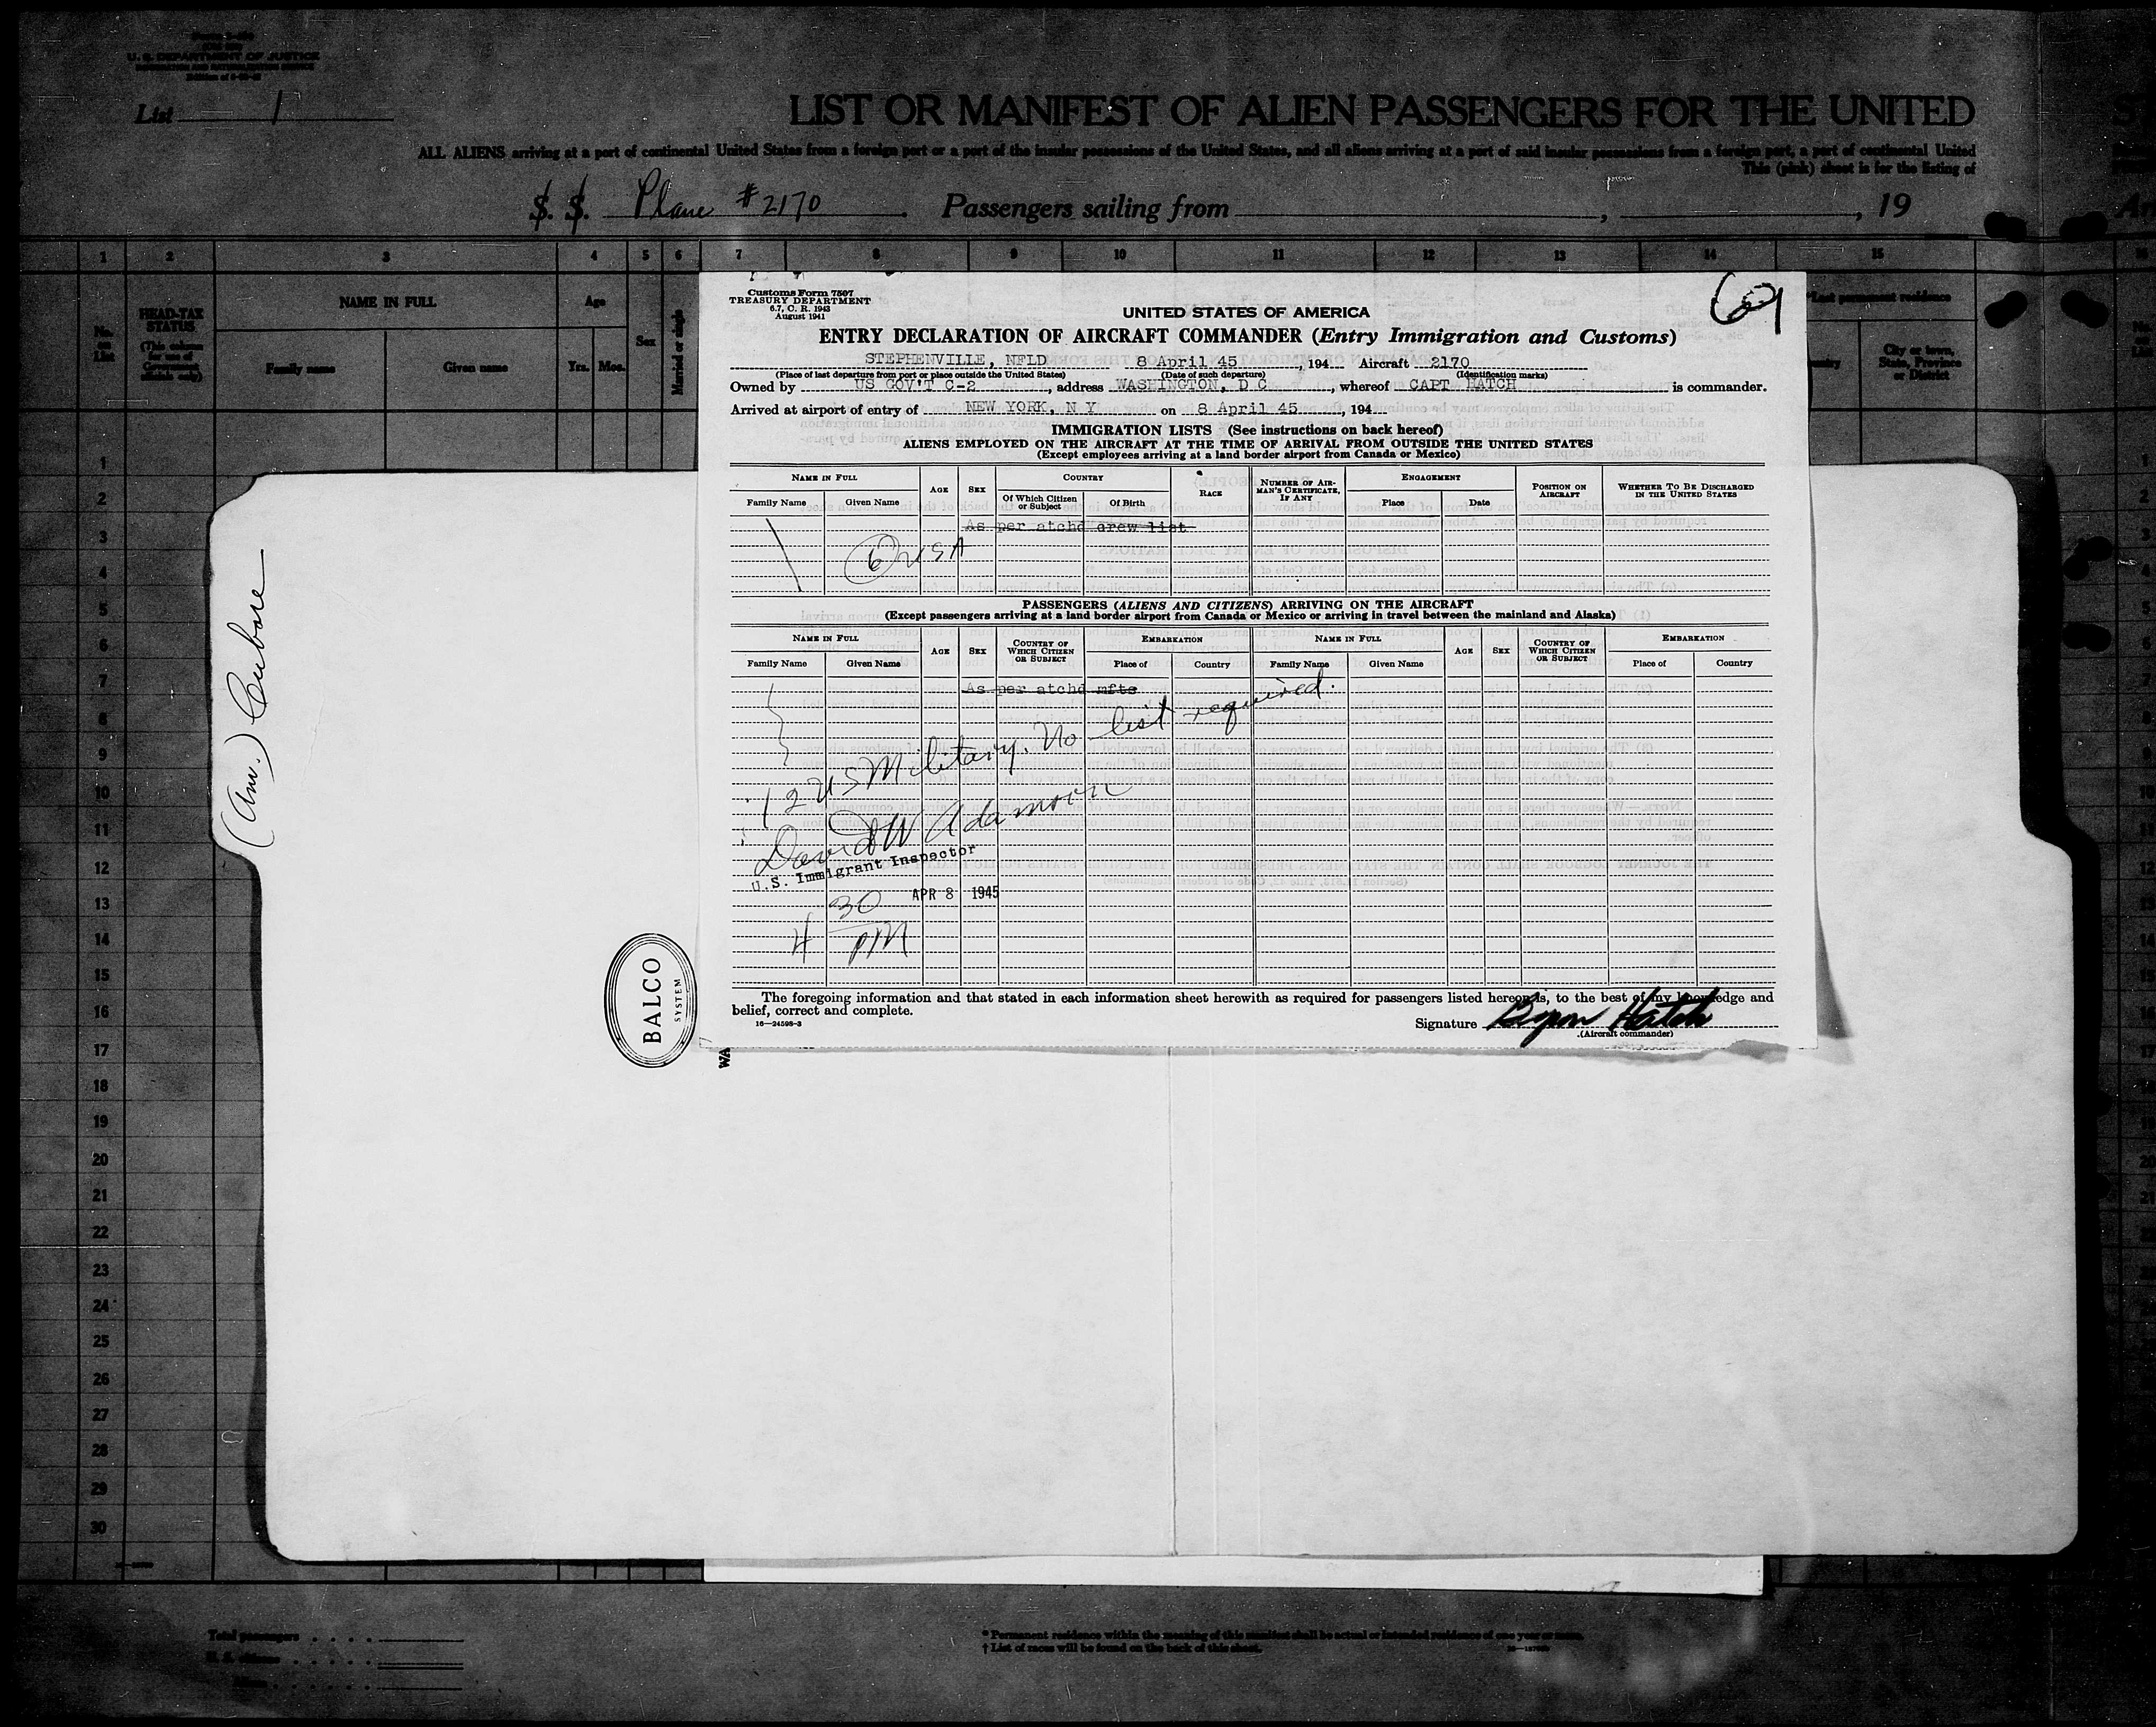 U. S. DEPARTMENT OF JUSTICE
List 1
LIST OR MANIFEST OF ALIEN PASSENGERS FOR THE UNITED
ALL ALIENS arriving at a port of continental United States from a foreign port or a port of the insular possessions of the United States, and all aliens arriving at a port of said insular possessions from a foreign port, a port of continental United
This (pink) sheet is for the listing of
S. S. Plane #2170 Passengers sailing from , , 19
1 2 3 4 5 6 7 8 9 10 11 12 13 14 15
No. on List
HEAD-TAX STATUS
(This column for use of Government officials only)
NAME IN FULL
Family name Given name
Age
Yrs. Mos.
Sex
Married or single
*Last permanent residence
City or town, State, Province or District
Customs Form 7507
TREASURY DEPARTMENT
6.7, C. R. 1943
August 1941
69
UNITED STATES OF AMERICA
ENTRY DECLARATION OF AIRCRAFT COMMANDER (Entry Immigration and Customs)
STEPHENVILLE, NFLD 8 April 45, 194 Aircraft 2170
(Place of last departure from port or place outside the United States) (Date of such departure) (Identification marks)
Owned by US GOV'T C-2, address WASHINGTON, D C, whereof CAPT HATCH is commander.
Arrived at airport of entry of NEW YORK, N Y on 8 April 45, 194
IMMIGRATION LISTS (See instructions on back hereof)
ALIENS EMPLOYED ON THE AIRCRAFT AT THE TIME OF ARRIVAL FROM OUTSIDE THE UNITED STATES
(Except employees arriving at a land border airport from Canada or Mexico)
NAME IN FULL AGE SEX COUNTRY RACE NUMBER OF AIRMAN'S CERTIFICATE, IF ANY ENGAGEMENT POSITION ON AIRCRAFT WHETHER TO BE DISCHARGED IN THE UNITED STATES
Family Name Given Name Of Which Citizen or Subject Of Birth Place Date
As per atchd crew list
6 USA
PASSENGERS (ALIENS AND CITIZENS) ARRIVING ON THE AIRCRAFT
(Except passengers arriving at a land border airport from Canada or Mexico or arriving in travel between the mainland and Alaska)
NAME IN FULL AGE SEX COUNTRY OF WHICH CITIZEN OR SUBJECT EMBARKATION NAME IN FULL AGE SEX COUNTRY OF WHICH CITIZEN OR SUBJECT EMBARKATION
Family Name Given Name Place of Country Family Name Given Name Place of Country
As per atchd mfts
12 US Military. No list required.
David W Adamson
U.S. Immigrant Inspector
APR 8 1945
4 30 PM
The foregoing information and that stated in each information sheet herewith as required for passengers listed hereon is, to the best of my knowledge and
belief, correct and complete.
16—24598-3
Signature Byron Hatch
(Aircraft commander)
(Am.)
BALCO
SYSTEM
WA
1
2
3
4
5
6
7
8
9
10
11
12
13
14
15
16
17
18
19
20
21
22
23
24
25
26
27
28
29
30
Total passengers
U. S. citizens
Aliens
* Permanent residence within the meaning of this manifest shall be actual or intended residence of one year or more.
† List of races will be found on the back of this sheet.